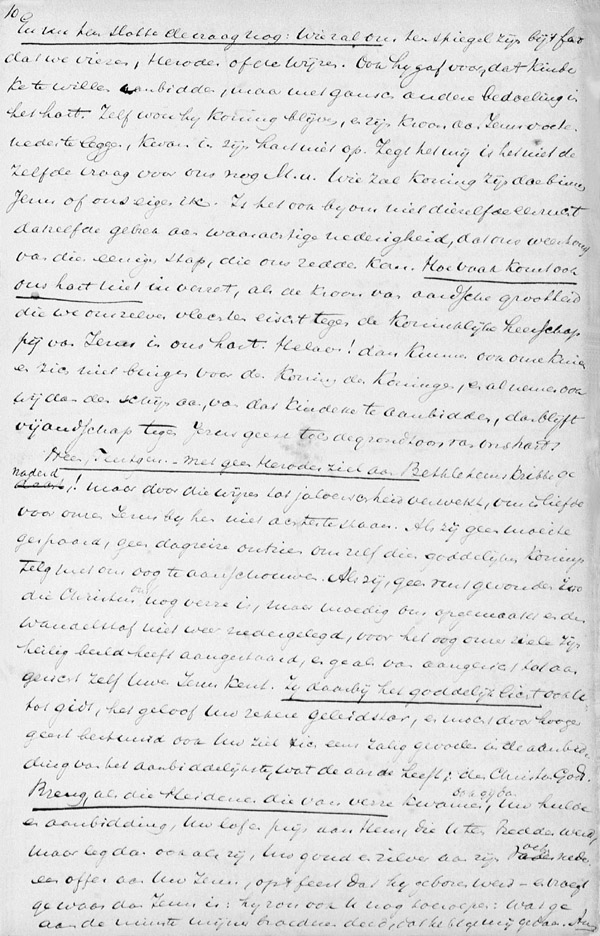 10
En nu ten slotte de vraag nog: Wie zal ons ten spiegel zijn bij 't feest
dat we vieren, Herodes of de Wijzen. Ook hij gaf voor, dat kindeke
ke te willen aanbidden, maar met gansch andere bedoeling in
het hart. Zelf won hij Koning blijven, en zijn kroon aan Jezus voeten
neder te leggen, kwam in zijn hart niet op. Zegt het mij is het niet de
zelfde vraag voor ons nog M.H. Wie zal Koning zijn daar binnen
Jezus of ons eigen ik. Is het ook bij ons niet diezelfde eerzucht
datzelfde gebrek aan waarachtige nederigheid, dat ons weerhoudt
van die eenige stap, die ons redden kan. Hoe vaak komt ook
ons hart niet in verzet, als de kroon van aardsche grootheid
die we onszelven vlechten eischt tegen de Koninklijke heerschap
pij van Jezus in ons hart. Helaas! dan kunnen ook onze knieen
er zich niet buigen voor den Koning der Koningen, en al nemen ook
wij dan den schijn aan, van dat kindeke te aanbidden, dan blijft
vijandschap tegen Jezus geest toch de grondtoon van ons hart.
Neen, - met geen Herodes ziel aan Bethlehems kribbe ge
naderd! maar door die wijzen tot jaloerschheid verwekt, om in liefde
voor onzen Jezus bij hen niet achter te staan. Als zij geen moeite
gespaard, geen dagreize ontzien om zelf dien goddelijken Konings
telg met ons oog te aanschouwen. Als zij, geen rust gevonden zoo
die Christus ons nog verre is, maar moedig ons opgemaakt en den
wandelstaf niet weer nedergelegd, voor het oog onzer ziele zijn
heilig beeld heeft aangestaard, en ge als van aangezicht tot aan
gezicht zelf Uwe Jezus kent. Zij daarbij het goddelijk licht ook U
tot gids, het geloof Uw zekere geleidstar, en moest door hooger
geest bestuurd ook Uw ziel zich eens zalig gevoelen in de aanbid
ding van het aanbiddelijkste, wat de aarde heeft; den Christus Gods.
Breng, als die Heidenen die van verre kwamen, Uw hulde
en aanbidding, Uw lof en prijs aan Hem, die U ten Redder werd,
maar leg dan ook als zij, Uw goud en zilver aan zijn voeten neder
een offer aan Uw Jezus, op 't feest dat hij geboren werd - en vraagt
ge waar dan Jezus is: hij zou ook U nog toeroepen: Wat ge
aan de minste mijner broederen deed, dat hebt ge mij gedaan. Amen